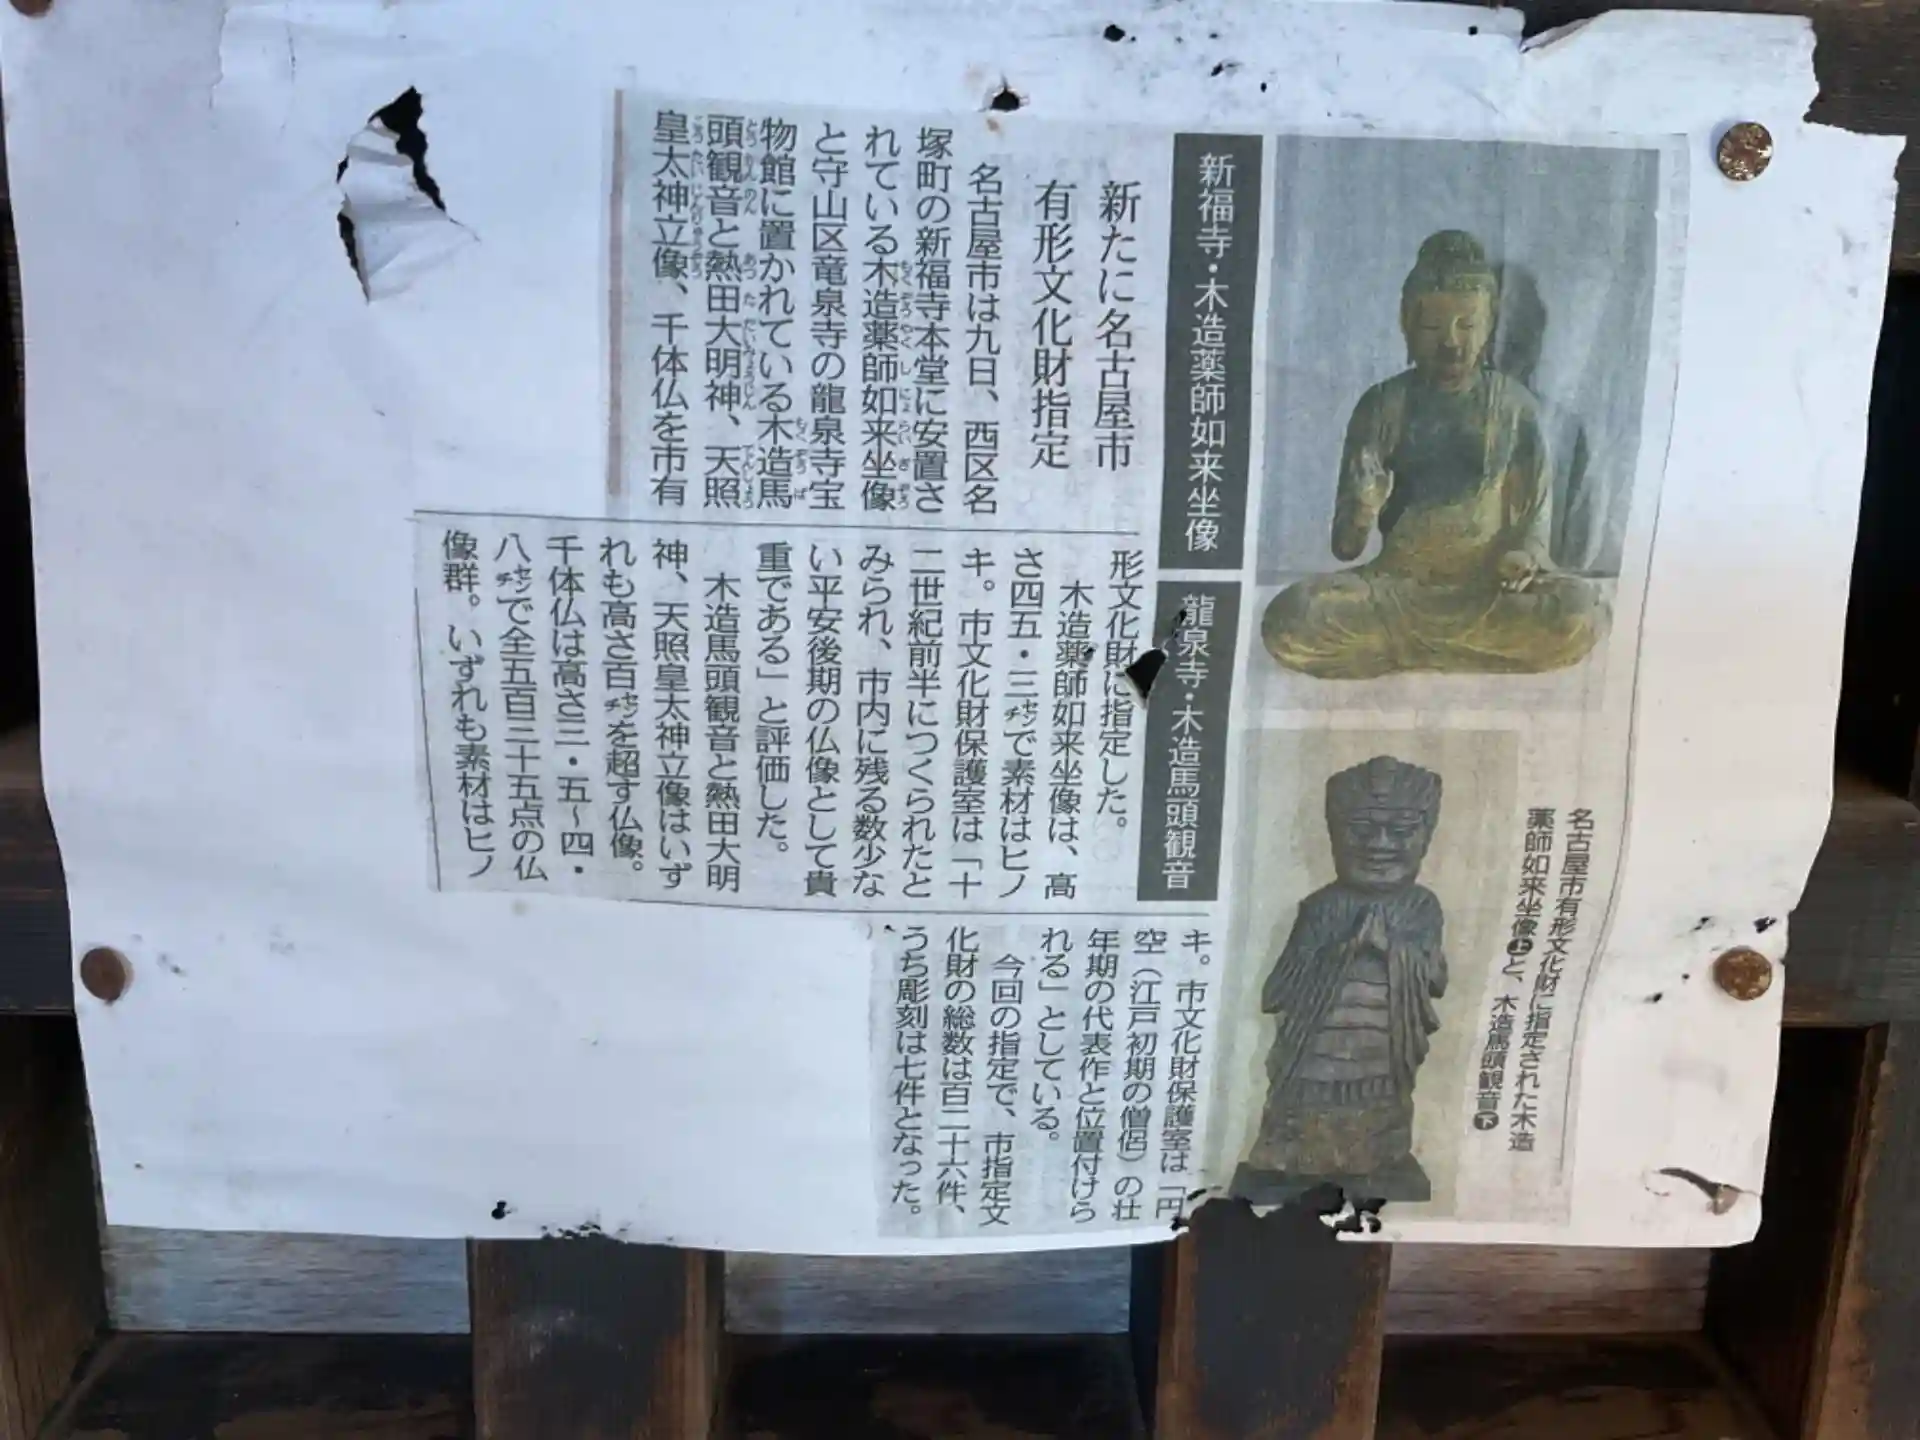 新福寺・木造薬師如来坐像
龍泉寺・木造馬頭観音
新たに名古屋市
有形文化財指定
名古屋市は九日、西区名
塚町の新福寺本堂に安置さ
れている木造薬師如来坐像
と守山区竜泉寺の龍泉寺宝
物館に置かれている木造馬
頭観音と熱田大明神、天照
皇太神立像、千体仏を市有
形文化財に指定した。
木造薬師如来坐像は、高
さ四五・三㌢で素材はヒノ
キ。市文化財保護室は「十
二世紀前半につくられたと
みられ、市内に残る数少な
い平安後期の仏像として貴
重である」と評価した。
木造馬頭観音と熱田大明
神、天照皇太神立像はいず
れも高さ百㌢を超す仏像。
千体仏は高さ三・五～四・
八㌢で全五百三十五点の仏
像群。いずれも素材はヒノ
キ。市文化財保護室は「円
空（江戸初期の僧侶）の壮
年期の代表作と位置付けら
れる」としている。
今回の指定で、市指定文
化財の総数は百二十六件、
うち彫刻は七件となった。
名古屋市有形文化財に指定された木造
薬師如来坐像上と、木造馬頭観音下